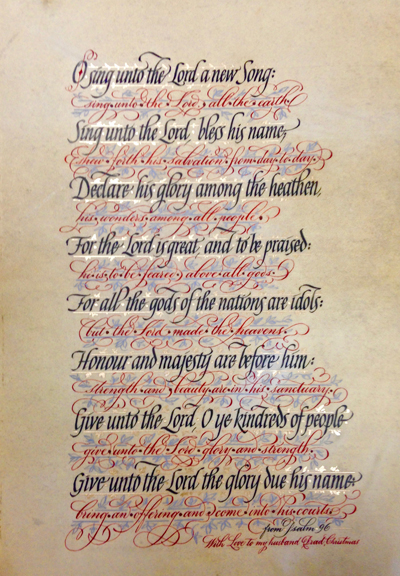 O sing unto the Lord a new Song:
sing unto the Lord, all the earth
Sing unto the Lord, bless his name;
shew forth his salvation from day to day.
Declare his glory among the heathen,
his wonders among all people.
For the Lord is great, and to be praised:
he is to be feared above all gods.
For all the gods of the nations are idols:
but the Lord made the heavens.
Honour and majesty are before him:
strength and beauty are in his sanctuary.
Give unto the Lord, O ye kindreds of people
give unto the Lord glory and strength.
Give unto the Lord the glory due his name:
bring an offering and come into his courts
from Psalm 96
With Love to my husband Christmas